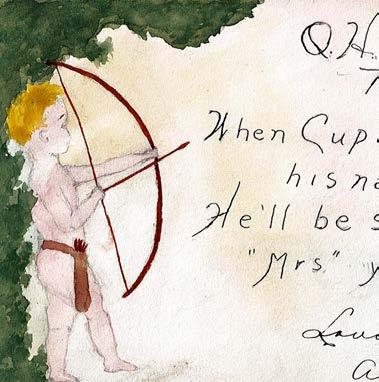 Q. H.
When Cup
his na
He'll be s
"Mrs" y